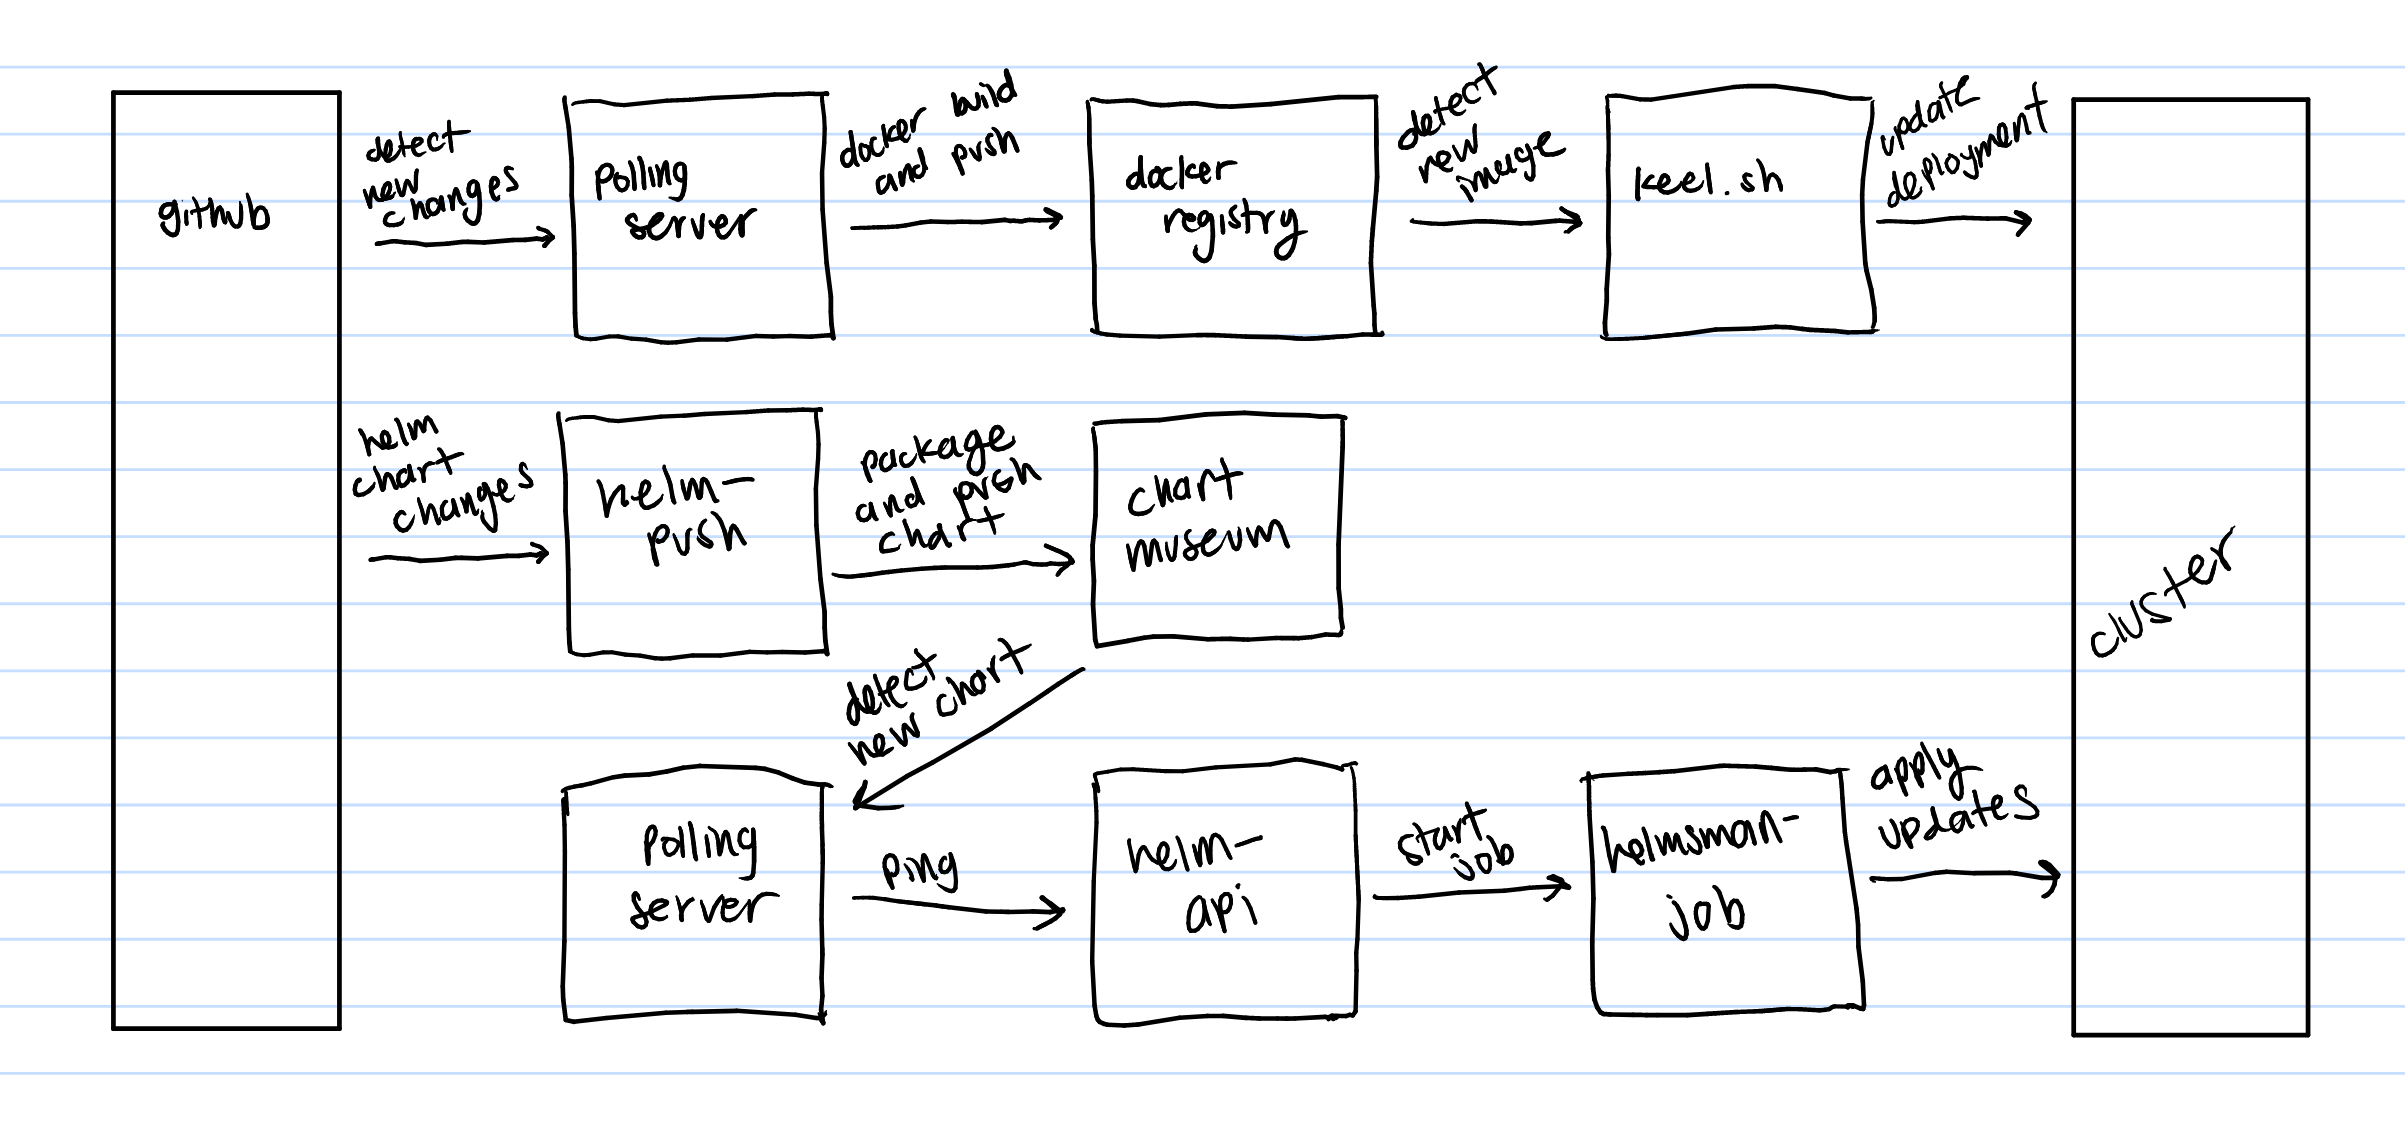 github
detect
new
changes
Polling
server
docker build
and push
docker
registry
detect
new
image
keel.sh
update
deployment
helm
chart
changes
helm-
push
package
and push
chart
chart
museum
cluster
detect
new chart
Polling
server
Ping
helm-
api
start
job
helmsman-
job
apply
updates